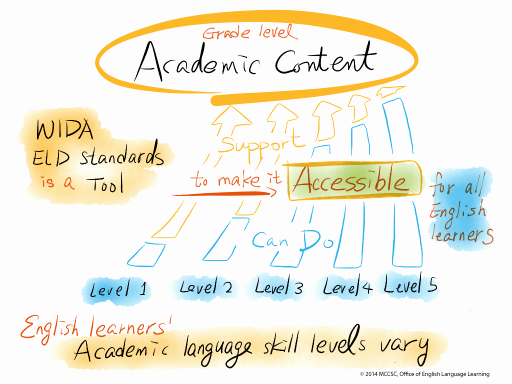 Grade level
Academic Content
WIDA
ELD standards
is a Tool
Support
to make it Accessible
for all
English
learners
Can Do
Level 1 Level 2 Level 3 Level 4 Level 5
English learners'
Academic language skill levels vary
© 2014 MCCSC, Office of English Language Learning